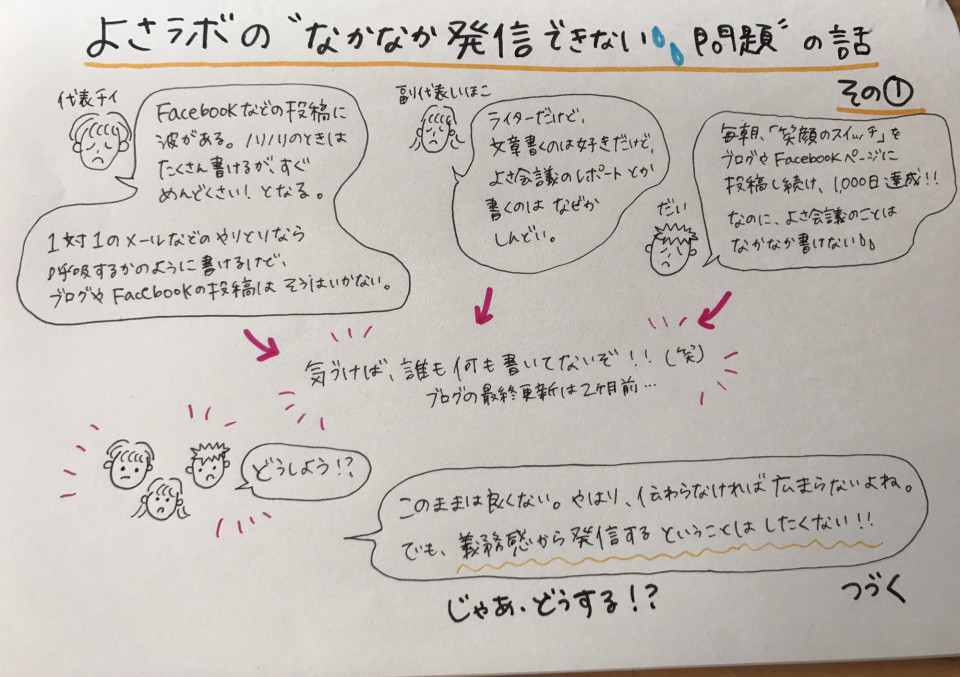 よさラボの"なかなか発信できない問題"の話
その①
代表チイ
Facebookなどの投稿に
波がある。ノリノリのときは
たくさん書けるが、すぐ
めんどくさい！となる。
1対1のメールなどのやりとりなら
呼吸するかのように書けるけど、
ブログやFacebookの投稿はそうはいかない。
副代表いほこ
ライターだけど、
文章書くのは好きだけど、
よさ会議のレポートとか
書くのはなぜか
しんどい。
だい
毎朝、「笑顔のスイッチ」を
ブログやFacebookページに
投稿し続け、1,000日達成！！
なのに、よさ会議のことは
なかなか書けない
気づけば、誰も何も書いてないぞ！！（笑）
ブログの最終更新は2ヶ月前…
どうしよう！？
このままは良くない。やはり、伝わらなければ広まらないよね。
でも、義務感から発信するということはしたくない！！
じゃあ、どうする！？
つづく